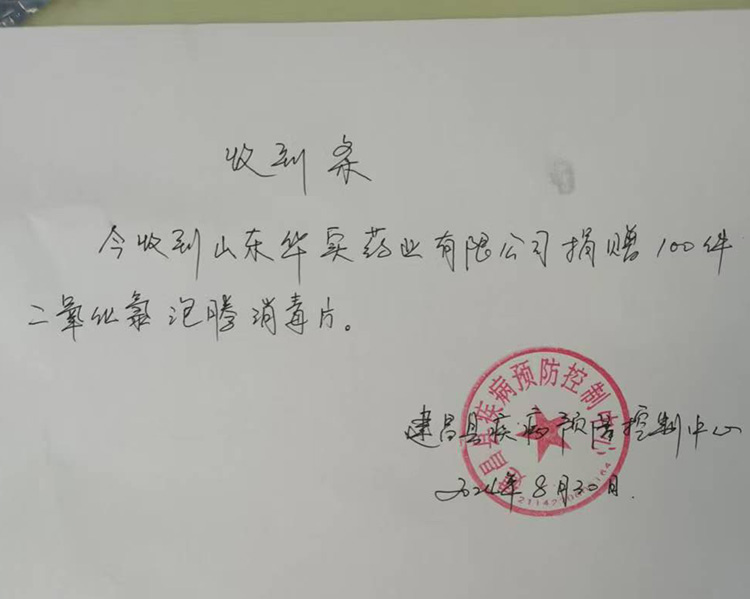 收到条
今收到山东华实药业有限公司捐赠100件
二氧化氯泡腾消毒片。
建昌县疾病预防控制中心
2024年8月30日.
建昌县疾病预防控制中心